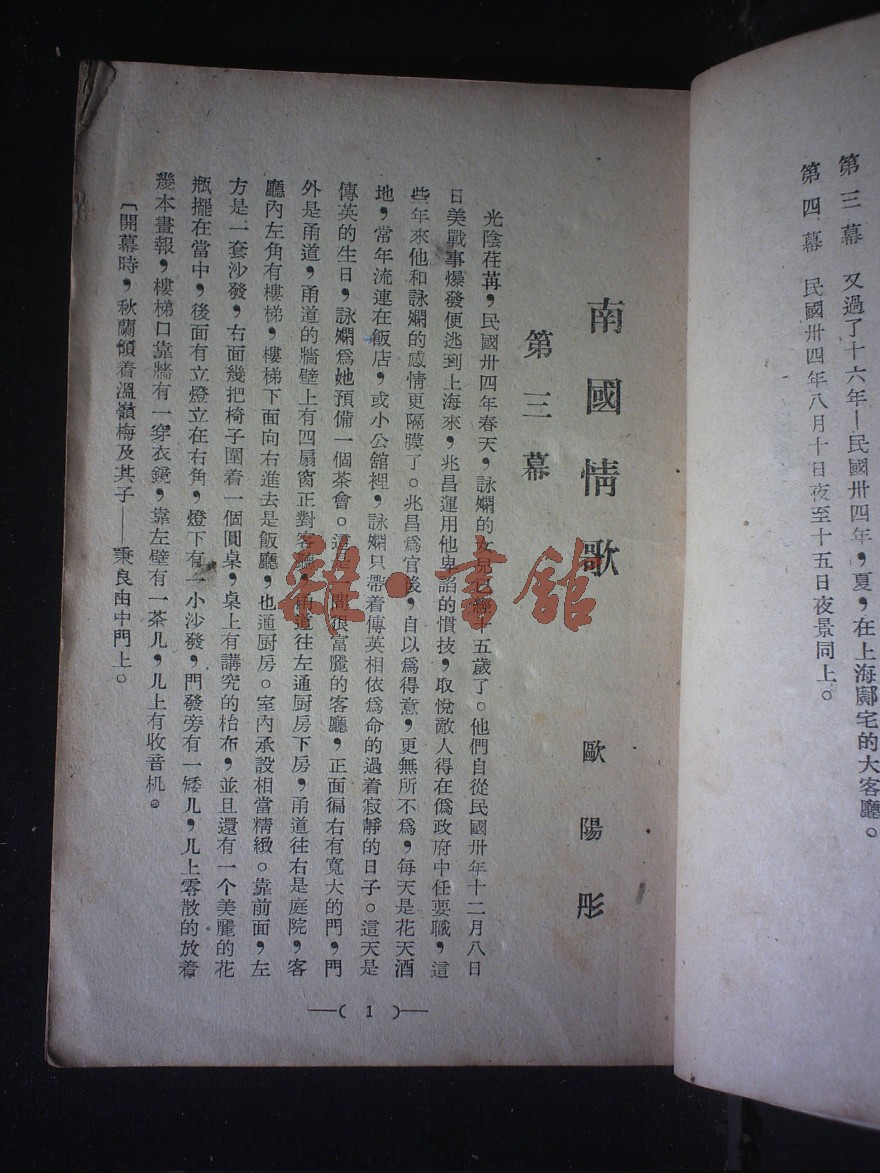 第三幕　又過了十六年—民國卅四年，夏，在上海鄺宅的大客廳。
第四幕　民國卅四年八月十日夜至十五日夜景同上。
南國情歌
歐陽彤
第三幕
光陰荏苒，民國卅四年春天，詠嫻的女兒已經十五歲了。他們自從民國卅年十二月八
日美戰事爆發便逃到上海來，兆昌運用他卑諂的慣技，取悅敵人得在僞政府中任要職，這
些年來他和詠嫻的感情更隔膜了。兆昌爲官後，自以爲得意，更無所不爲，每天是花天酒
地，常年流連在飯店，或小公舘裡，詠嫻只帶着傳英相依爲命的過着寂靜的日子。這天是
傳英的生日，詠嫻爲她預備一個茶會。這是一間很富麗的客廳，正面徧右有寬大的門，門
外是甬道，甬道的牆壁上有四扇窗正對客廳，甬道往左通厨房下房，甬道往右是庭院，客
廳內左角有樓梯，樓梯下面向右進去是飯廳，也通厨房。室內承設相當精緻。靠前面，左
方是一套沙發，右面幾把椅子圍着一個圓桌，桌上有講究的枱布，並且還有一个美麗的花
瓶擺在當中，後面有立燈立在右角，燈下有一小沙發，門發旁有一矮儿，儿上零散的放着
幾本畫報，樓梯口靠牆有一穿衣鏡，靠左壁有一茶儿，儿上有收音机。
〔開幕時，秋蘭領着溫嶺梅及其子——秉良由中門上。
—( 1 )—
雜·書舘